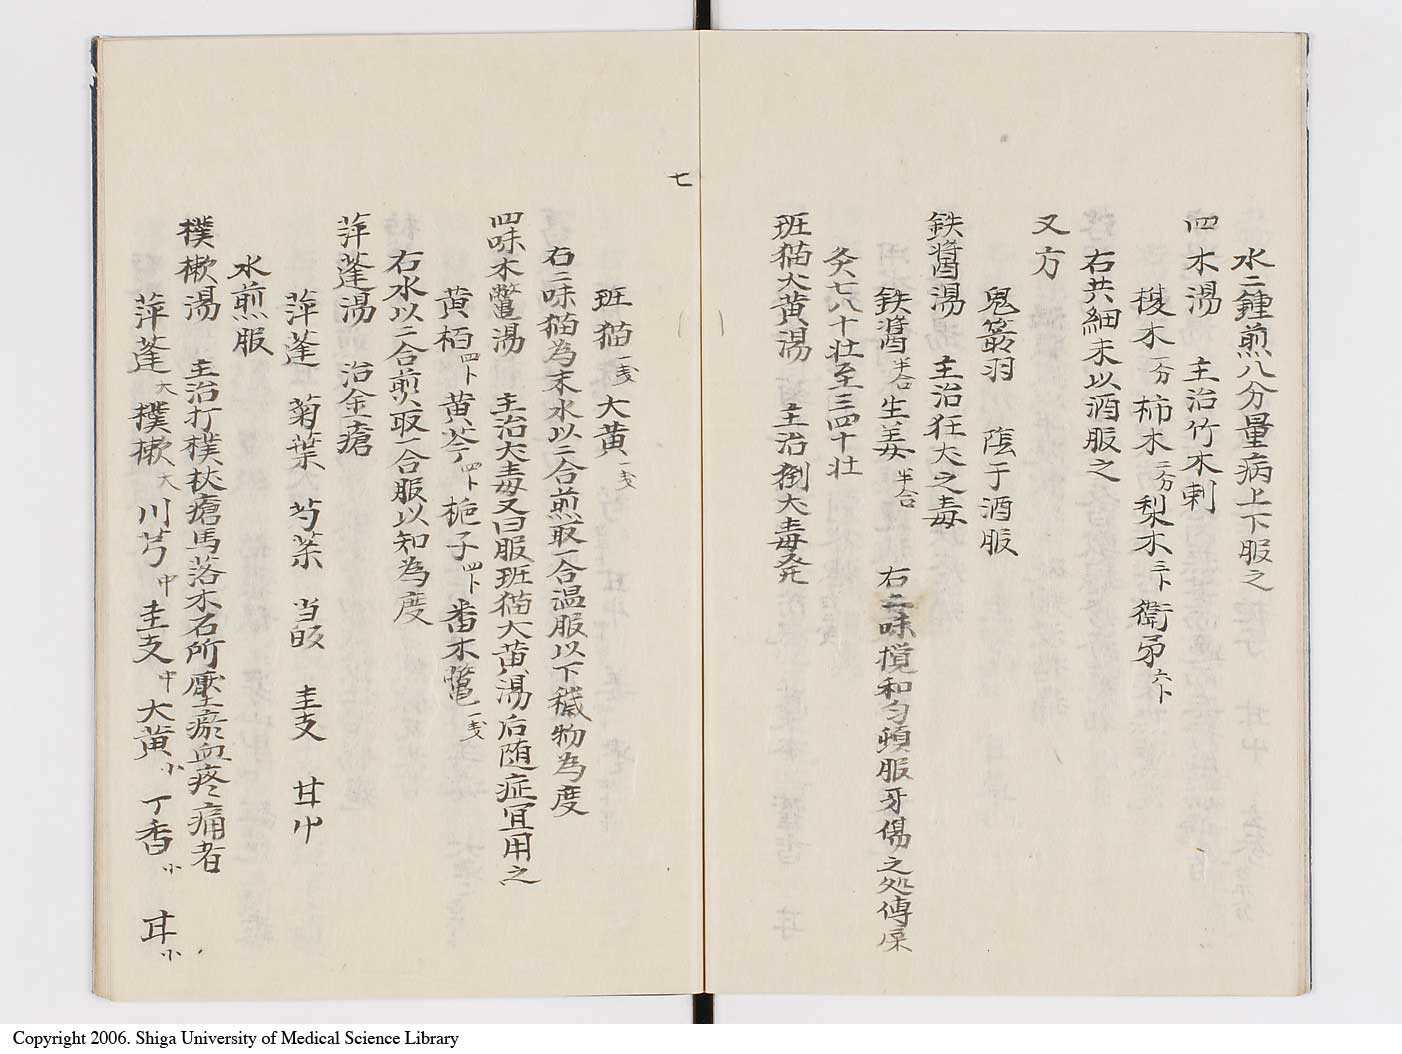 水二鍾煎八分量病上下服之
四木湯　主治竹木刺
椶木一分柿木二分梨木三卜衛矛六卜
右共細末以酒服之
又方
鬼箭羽　陰于酒服
鉄醬湯　主治狂犬之毒
鉄醬半合生姜半合　右二味攪和匀頓服牙傷之処傅屎
灸七八十壮至三四十壮
班猫大黄湯　主治猘犬毒発
七
班猫一戔大黄一戔
右二味猫為末水以二合煎取一合温服以下穢物為度
四味木鼈湯　主治犬毒又曰服班猫大黄湯后随症宜用之
黄栢四卜黄芩四卜梔子四卜番木鼈一戔
右水以二合煎取一合服以知為度
萍蓬湯　治金瘡
萍蓬　菊葉　芍薬　当皈　圭支　甘艸
水煎服
樸樕湯　主治打撲杖瘡馬落木石所壓瘀血疼痛者
萍蓬大樸樕大川芎中圭支中大黄小丁香小　甘小
Copyright 2006. Shiga University of Medical Science Library